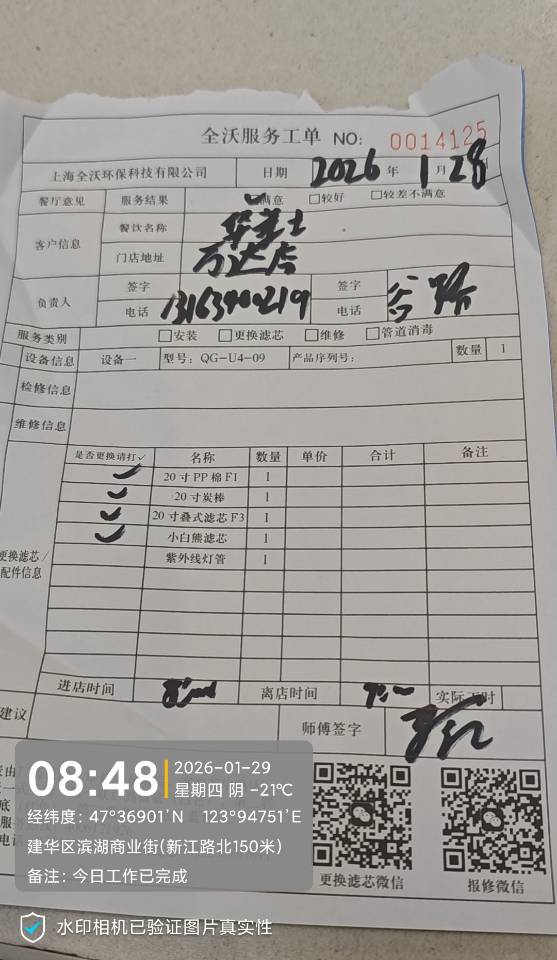 全沃服务工单 NO: 0014125
上海全沃环保科技有限公司 日期 2026 年 1 月 28
餐厅意见 服务结果 满意 □较好 □较差不满意
客户信息 餐饮名称 华莱士
门店地址 万达店
负责人 签字 签字
电话 13163400219 电话
服务类别 □安装 □更换滤芯 □维修 □管道消毒
设备信息 设备一 型号: QG-U4-09 产品序列号: 数量 1
检修信息
维修信息
是否更换请打✓ 名称 数量 单价 合计 备注
✓ 20寸PP棉F1 1
✓ 20寸炭棒 1
✓ 20寸叠式滤芯F3 1
✓ 小白熊滤芯 1
紫外线灯管 1
更换滤芯/
配件信息
进店时间 离店时间 实际工时
建议 师傅签字
08:48 2026-01-29
星期四 阴 -21℃
经纬度: 47°36901'N 123°94751'E
建华区滨湖商业街(新江路北150米)
备注: 今日工作已完成
更换滤芯微信 报修微信
水印相机已验证图片真实性